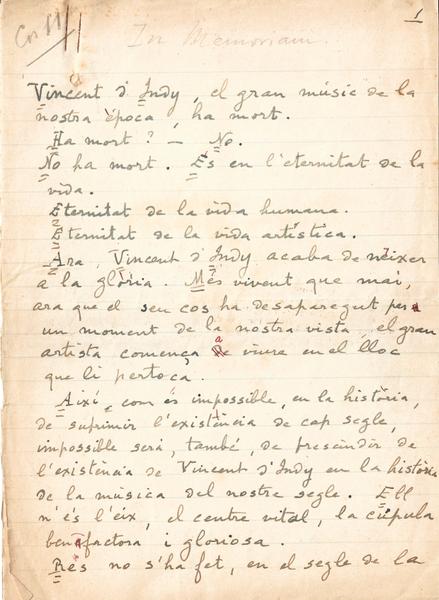 1
Cos 11
In Memoriam.
Vincent d'Indy, el gran músic de la
nostra época, ha mort.
Ha mort? — No.
No ha mort. És en l'eternitat de la
vida.
Eternitat de la vida humana.
Eternitat de la vida artística.
Ara, Vincent d'Indy acaba de néixer
a la glória. Més vivent que mai,
ara que el seu cos ha desaparegut per
un moment de la nostra vista, el gran
artista comença a viure en el lloc
que li pertoca.
Així, com és impossible, en la história,
de suprimir l'existència de cap segle,
impossible serà, també, de prescindir de
l'existència de Vincent d'Indy en la història
de la música del nostre segle. Ell
n'és l'éix, el centre vital, la cúpula
benefactora i gloriosa.
Res no s'ha fet, en el segle de la